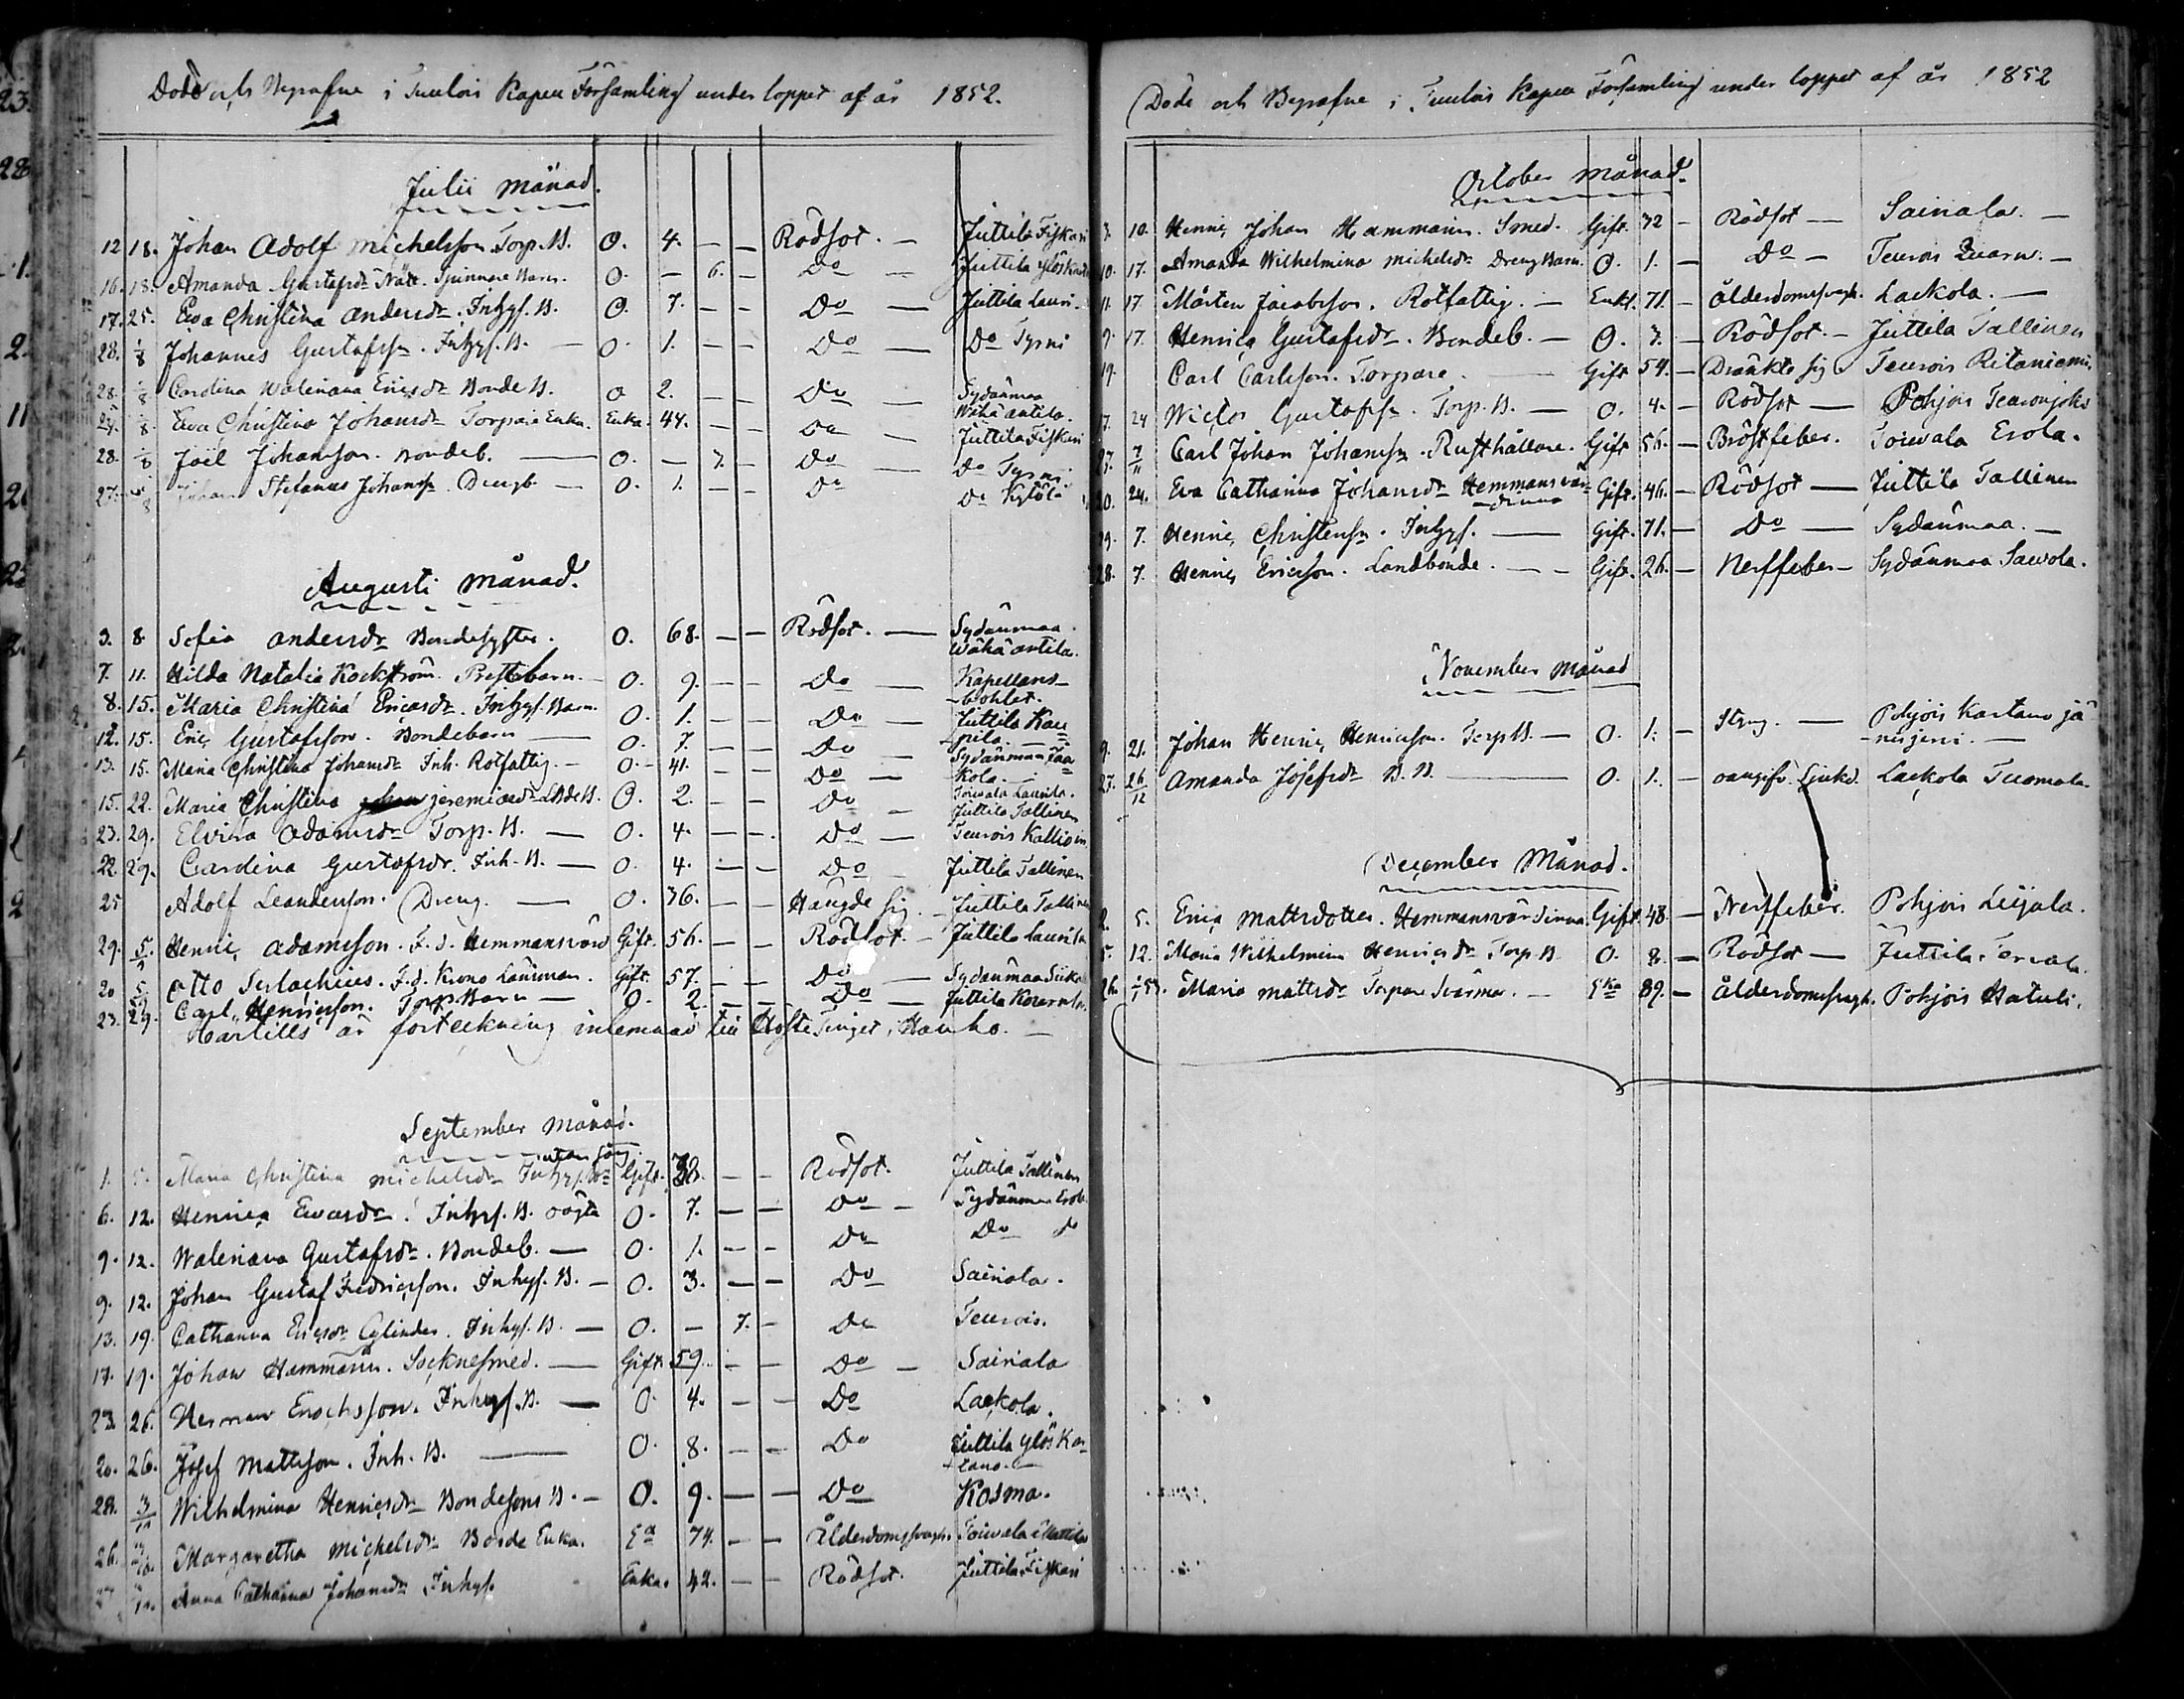 Döde och Begrafne i Tuulois Kapell Församling under loppet af år 1852.
Julii månad.
12 18. Johan Adolf Michelsson Torp. B. O. 4. — — Rödsot. — Juttila Fiskari
16. 18. Amanda Gustafsdr Nätt. Spinnare Barn. O. — 6. — Do —
17. 25. Eva Christina Andersdr. Inhys. B. O. 7. — — Do — Juttila Lauri
28. 1/8 Johannes Gustafsson. Inhys. B. — O. 1. — — Do — Do Tyrni
28. 1/8 Carolina Waleriana Ericsdr Bonde B. O 2. — — Do — Sydänmaa Wähäantila.
24. 1/8. Eva Christina Johansdr Torpare Enka. Enka. 44. — — Do — Juttila Fiskari
28. 1/8 Joël Johansson. Bondeb. — O. — 7. — Do — Do Tyrni
27. Johan Stefanus Johansson Drengb. — O. 1. — — Do Do Kylölä
Augusti månad.
3. 8. Sofia Andersdr Bondesyster. O. 68. — — Rödsot. — Sydänmaa Wähäantila.
7. 11. Hilda Natalia Kockström. Prestebarn. — O. 9. — — Do — Kapellans-bohlet.
8. 15. Maria Christina Ericsdr. Inhys. Barn. O. 1. — — Do — Juttila
12. 15. Eric Gustafsson. Bondebarn — O. 7. — — Do —
13. 15. Maria Christina Johansdr Inh. Rotfattig. — O. — 41. — — Do — Sydänmaa Jaakola.
15. 22. Maria Christina Jeremiaedr O. 2. — — Do — Toivala Laurila.
23. 29. Elvira Adamsdr Torp. B. — O. 4. — — Do — Teurois
22. 29. Carolina Gustafsdr. Inh. B. — O. 4. — — Do — Juttila Tallinen
25 Adolf Leandersson. Dreng. — O. 36. — — Hängde sig. — Juttila Tallinen
29. 5/9 Henric Adamsson. F. d. Hemmansvärd Gift. 56. — — Rödsot. — Juttila Laurila
20 5. Otto Serlachius. F.d. Krono Länsman. Gift. 57. — — Do — Sydänmaa
23. 29. Carl Henricsson. Torp. Barn — O. 2. — — Do — Juttila
Härtills är förteckning inlemnad till Höste Tinget i Hauho. —
September månad.
1. 5. Maria Christina Michelsdr Gift. — — Rödsot. Juttila Tallinen
6. 12. Henrica Ewardsdr. Inhys. B. oägta O. 7. — — Do — Sydänmaa Erola
9. 12. Waleriana Gustafsdr. Bondeb. — O. 1. — — Do Do do
9. 12. Johan Gustaf Fredricsson. Inhys. B. — O. 3. — — Do Sairiala.
13. 19. Catharina Ericsdr Cylinder. Inhys. B. — O. — 7. — Do Teurois.
17. 19. Johan Hammarin. Socknesmed. — Gift. 59. — — Do — Sairiala
23. 26. Herman Enochsson. Inhys. B. — O. 4. — — Do Lackola.
20. 26. Josef Mattsson. Inh. B. — O. 8. — — Do
28. 3/10 Wilhelmina Henricsdr Bondesons B. — O. 9. — — Do Kosma.
26. 3/10. Margaretha Michelsdr Bonde Enka. 74. — — Ålderdomssvagh. Toivala Mattila
27 Anna Catharina Johansdr Inhys. Enka. 42. — — Rödsot. Juttila Fiskari
Döde och Begrafne i Tuulois Kapell Församling under loppet af år 1852
October månad.
3. 10. Henric Johan Hammarin. Smed. Gift. 32 — Rödsot — Sairiala. —
10. 17. Amanda Wilhelmina Michelsdr Dreng Barn. O. 1. — Do — Teurois Quarn. —
11. 17. Mårten Jacobsson. Rotfattig. — Enkl. 71. — Ålderdomssvagh. Lackola. —
9. 17. Henrica Gustafsdr. Bondeb. — O. 3. — Rödsot. — Juttila Tallinen
19. Carl Carlsson. Torpare. — Gift 54. — Dränkte sig Teurois Ritaniemi.
17. 24 Wictor Gustafsson. Torp. B. — O. 4. — Rödsot — Pohjois Teuronjoki
27. 7/11 Carl Johan Johansson. Rusthållare. Gift 56. — Bröstfeber. Toivala Erola.
20. 24. Eva Catharina Johansdr Hemmansvärdinna Gift. 46. — Rödsot — Juttila Tallinen
19. 7. Henric Christersson. Inhys. — Gift. 71. — Do — Sydänmaa. —
28. 7. Henric Ericsson. Landbonde. — Gift. 26. — Nerffeber — Sydänmaa Sawola.
November månad
9. 21. Johan Henric Henricsson. Torp. B. — O. 1. — Stryp. — Pohjois Kartano jänisjervi. —
27. 26/12 Amanda Josefsdr B. B. — O. 1. — oangifv. Sjukd. Lackola Tuomola.
December Månad.
2. 5. Erica Mattsdotter. Hemmansvärdinna Gift 48. — Nerffeber. Pohjois Leijala.
5. 12. Maria Wilhelmina Henricsdr Torp. B. O. 8. — Rödsot — Juttila
26. 1/1 53. Maria Mattsdr Torpare Svärmor. — Eka 89. — Ålderdomssvagh. Pohjois Hatuli.